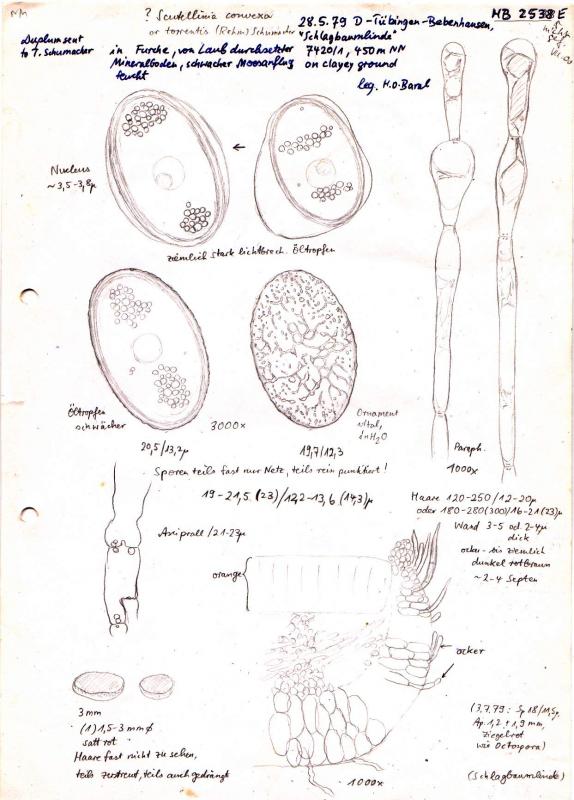 ? Scutellinia convexa
or torrentis (Rehm) Schumacher
28.5.79 D-Tübingen-Bebenhausen,
HB 2538 E
"Schlagbaumlinde"
Duplum sent
to T. Schumacher
in Furche, von Laub durchsetzter
Mineralboden, schwacher Moosanflug
feucht
7420/1, 450 m NN
on clayey ground
leg. H.O. Baral
Nucleus
~3,5-3,8µ
ziemlich stark lichtbrech. Öltropfen
Öltropfen
schwächer
3000x
20,5/13,2µ
19,7/12,3
Ornament
vital,
in H2O
Paraph.
1000x
Sporen teils fast nur Netz, teils rein punktiert!
19-21,5 (23)/12,2-13,6 (14,3)µ
Haare 120-250/12-20µ
oder 180-280(300)/16-21(23)µ
Wand 3-5 od. 2-4µ
dick
ocker- bis ziemlich
dunkel rotbraun
~2-4 Septen
Asci prall /21-23µ
orange
ocker
3 mm
(1) 1,5-3 mm ø
satt rot
Haare fast nicht zu sehen,
teils zerstreut, teils auch gedrängt
1000x
(3.7.79: Sp 18/11,5µ
Ap. 1,2 ± 1,9 mm,
ziegelrot
wie Octospora)
(Schlagbaumlinde)